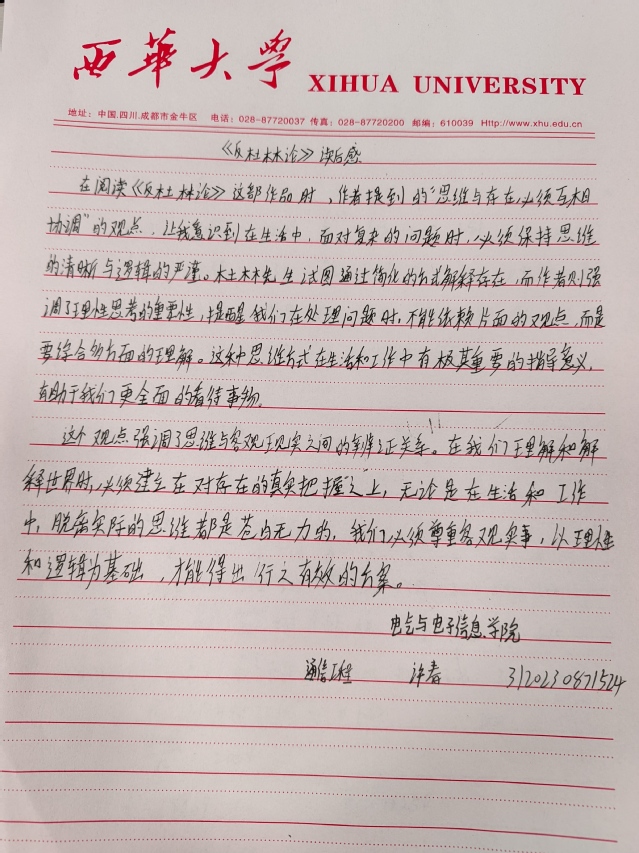 西華大學 XIHUA UNIVERSITY
地址：中国.四川.成都市金牛区 电话：028-87720037 传真：028-87720200 邮编：610039 Http://www.xhu.edu.cn
《反杜林论》读后感
在阅读《反杜林论》这部作品时，作者提到的“思维与存在必须互相
协调”的观点，让我意识到在生活中，面对复杂的问题时，必须保持思维
的清晰与逻辑的严谨。杜林先生试图通过简化的方式解释存在，而作者则强
调了理性思考的重要性，提醒我们在处理问题时，不能依赖片面的观点，而是
要综合多方面的理解。这种思维方式在生活和工作中有极其重要的指导意义，
有助于我们更全面的看待事物。
这个观点强调了思维与客观现实之间的辩证关系。在我们理解和解
释世界时，必须建立在对存在的真实把握之上，无论是在生活和工作
中，脱离实际的思维都是苍白无力的，我们必须尊重客观实事，以理性
和逻辑为基础，才能得出行之有效的方案。
电气与电子信息学院
通信工程 许春 3120230871524